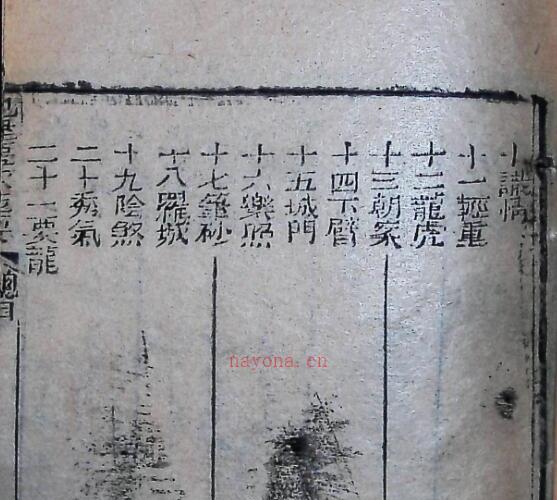 十識情
十一輕重
十二龍虎
十三朝案
十四下臂
十五城門
十六樂照
十七砂
十八羅城
十九陰煞
二十氣
二十一龍
總目
nayona.cn